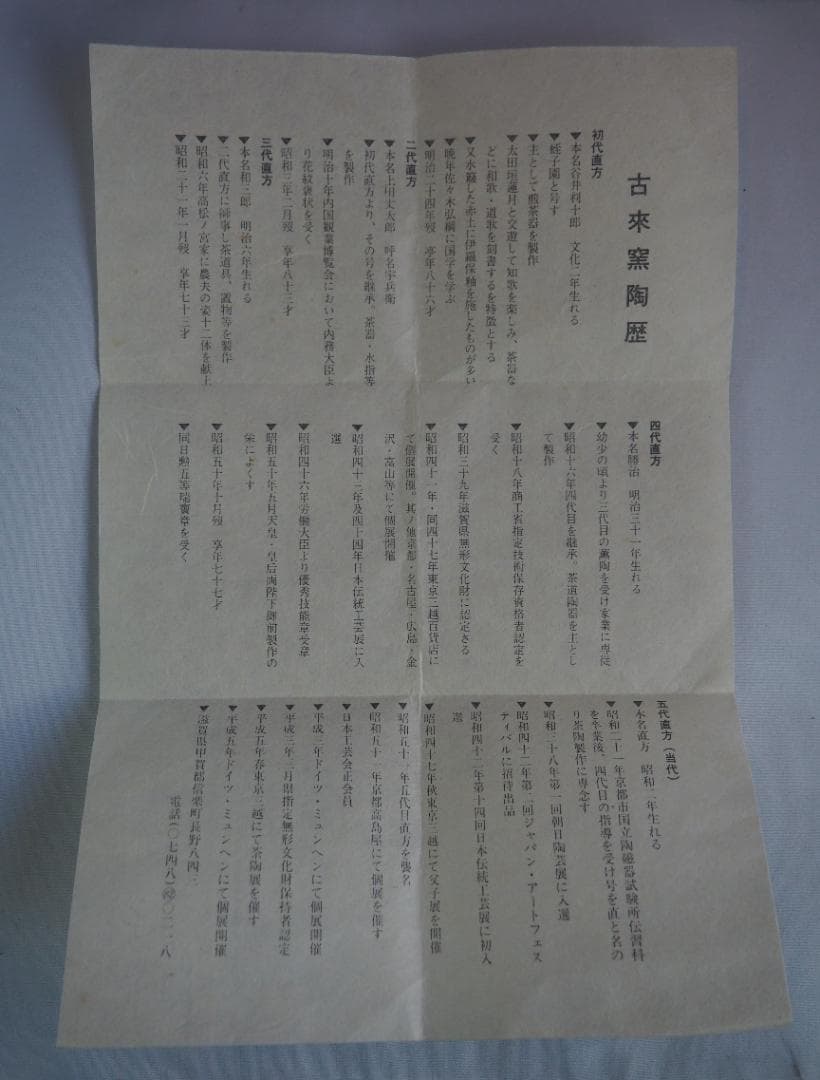 古來窯陶歴
初代直方
▼本名谷井利十郎　文化二年生れる
▼蛙子園と号す
▼主として煎茶器を製作
▼太田垣蓮月と交遊して和歌を楽しみ、茶器な
どに和歌・道歌を刻書するを特徴とする
▼又水簸した赤土に伊羅保釉を施したものが多い
▼晩年佐々木弘綱に国学を学ぶ
▼明治二十四年歿　享年八十六才
二代直方
▼本名上田丈太郎　呼名宇兵衛
▼初代直方より、その号を継承、茶器・水指等
を製作
▼明治十年内国勧業博覧会において内務大臣よ
り花紋褒状を受く
▼昭和三年二月歿　享年八十三才
三代直方
▼本名和三郎　明治六年生れる
▼二代直方に師事し茶道具、置物等を製作
▼昭和六年高松ノ宮家に農夫の姿十二体を献上
▼昭和二十一年一月歿　享年七十三才
四代直方
▼本名勝治　明治三十一年生れる
▼幼少の頃より三代目の薫陶を受け家業に専従
▼昭和十六年四代目を継承。茶道陶器を主とし
て製作
▼昭和十八年商工省指定技術保存資格者認定を
受く
▼昭和三十九年滋賀県無形文化財に認定さる
▼昭和四十一年・同四十七年東京三越百貨店に
て個展開催。其ノ他京都・名古屋・広島・金
沢・富山等にて個展開催
▼昭和四十三年及四十四年日本伝統工芸展に入
選
▼昭和四十六年労働大臣より優秀技能章受章
▼昭和五十年五月天皇・皇后両陛下御前製作の
栄によくす
▼昭和五十年十月歿　享年七十七才
▼同日勲五等瑞宝章を受く
五代直方（当代）
▼本名直方　昭和二年生れる
▼昭和二十一年京都市国立陶磁器試験所伝習科
を卒業後、四代目の指導を受け号を直と名の
り茶陶製作に専念す
▼昭和三十八年第一回朝日陶芸展に入選
▼昭和四十二年第二回ジャパン・アートフェス
ティバルに招待出品
▼昭和四十二年第十四回日本伝統工芸展に初入
選
▼昭和四十七年秋東京三越にて父子展を開催
▼昭和五十一年五代目直方を襲名
▼昭和五十一年京都高島屋にて個展を催す
▼日本工芸会正会員
▼平成三年ドイツ・ミュンヘンにて個展開催
▼平成三年三月県指定無形文化財保持者認定
▼平成五年春東京三越にて茶陶展を催す
▼平成五年ドイツ・ミュンヘンにて個展開催
▼滋賀県甲賀郡信楽町長野八四三
電話（〇七四八）